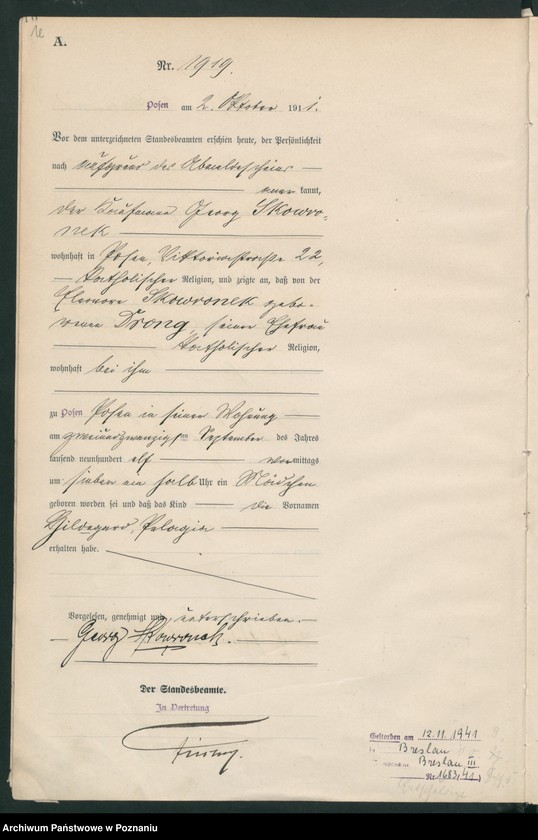 A.
Nr. 1919.
Posen am 2. Oktober 1911.
Vor dem unterzeichneten Standesbeamten erschien heute, der Persönlichkeit
nach auf Grund des Abmeldescheins
aner kannt,
der Kaufmann Georg Skowro-
nek
wohnhaft in Posen, Viktoriastraße 22,
katholischer Religion, und zeigte an, daß von der
Eleonore Skowronek gebo-
renen Drong, seiner Ehefrau
katholischer Religion,
wohnhaft bei ihm
zu Posen Posen in seiner Wohnung
am zweiundzwanzigsten September des Jahres
tausend neunhundert elf vormittags
um sieben ein halb Uhr ein Mädchen
geboren worden sei und daß das Kind die Vornamen
Hildegard, Pelagia
erhalten habe.
Vorgelesen, genehmigt und unterschrieben.
Georg Skowronek.
Der Standesbeamte.
In Vertretung
Gestorben am 12.11.1941
in Breslau
Breslau III
Nr. 1683/41
Archiwum Państwowe w Poznaniu